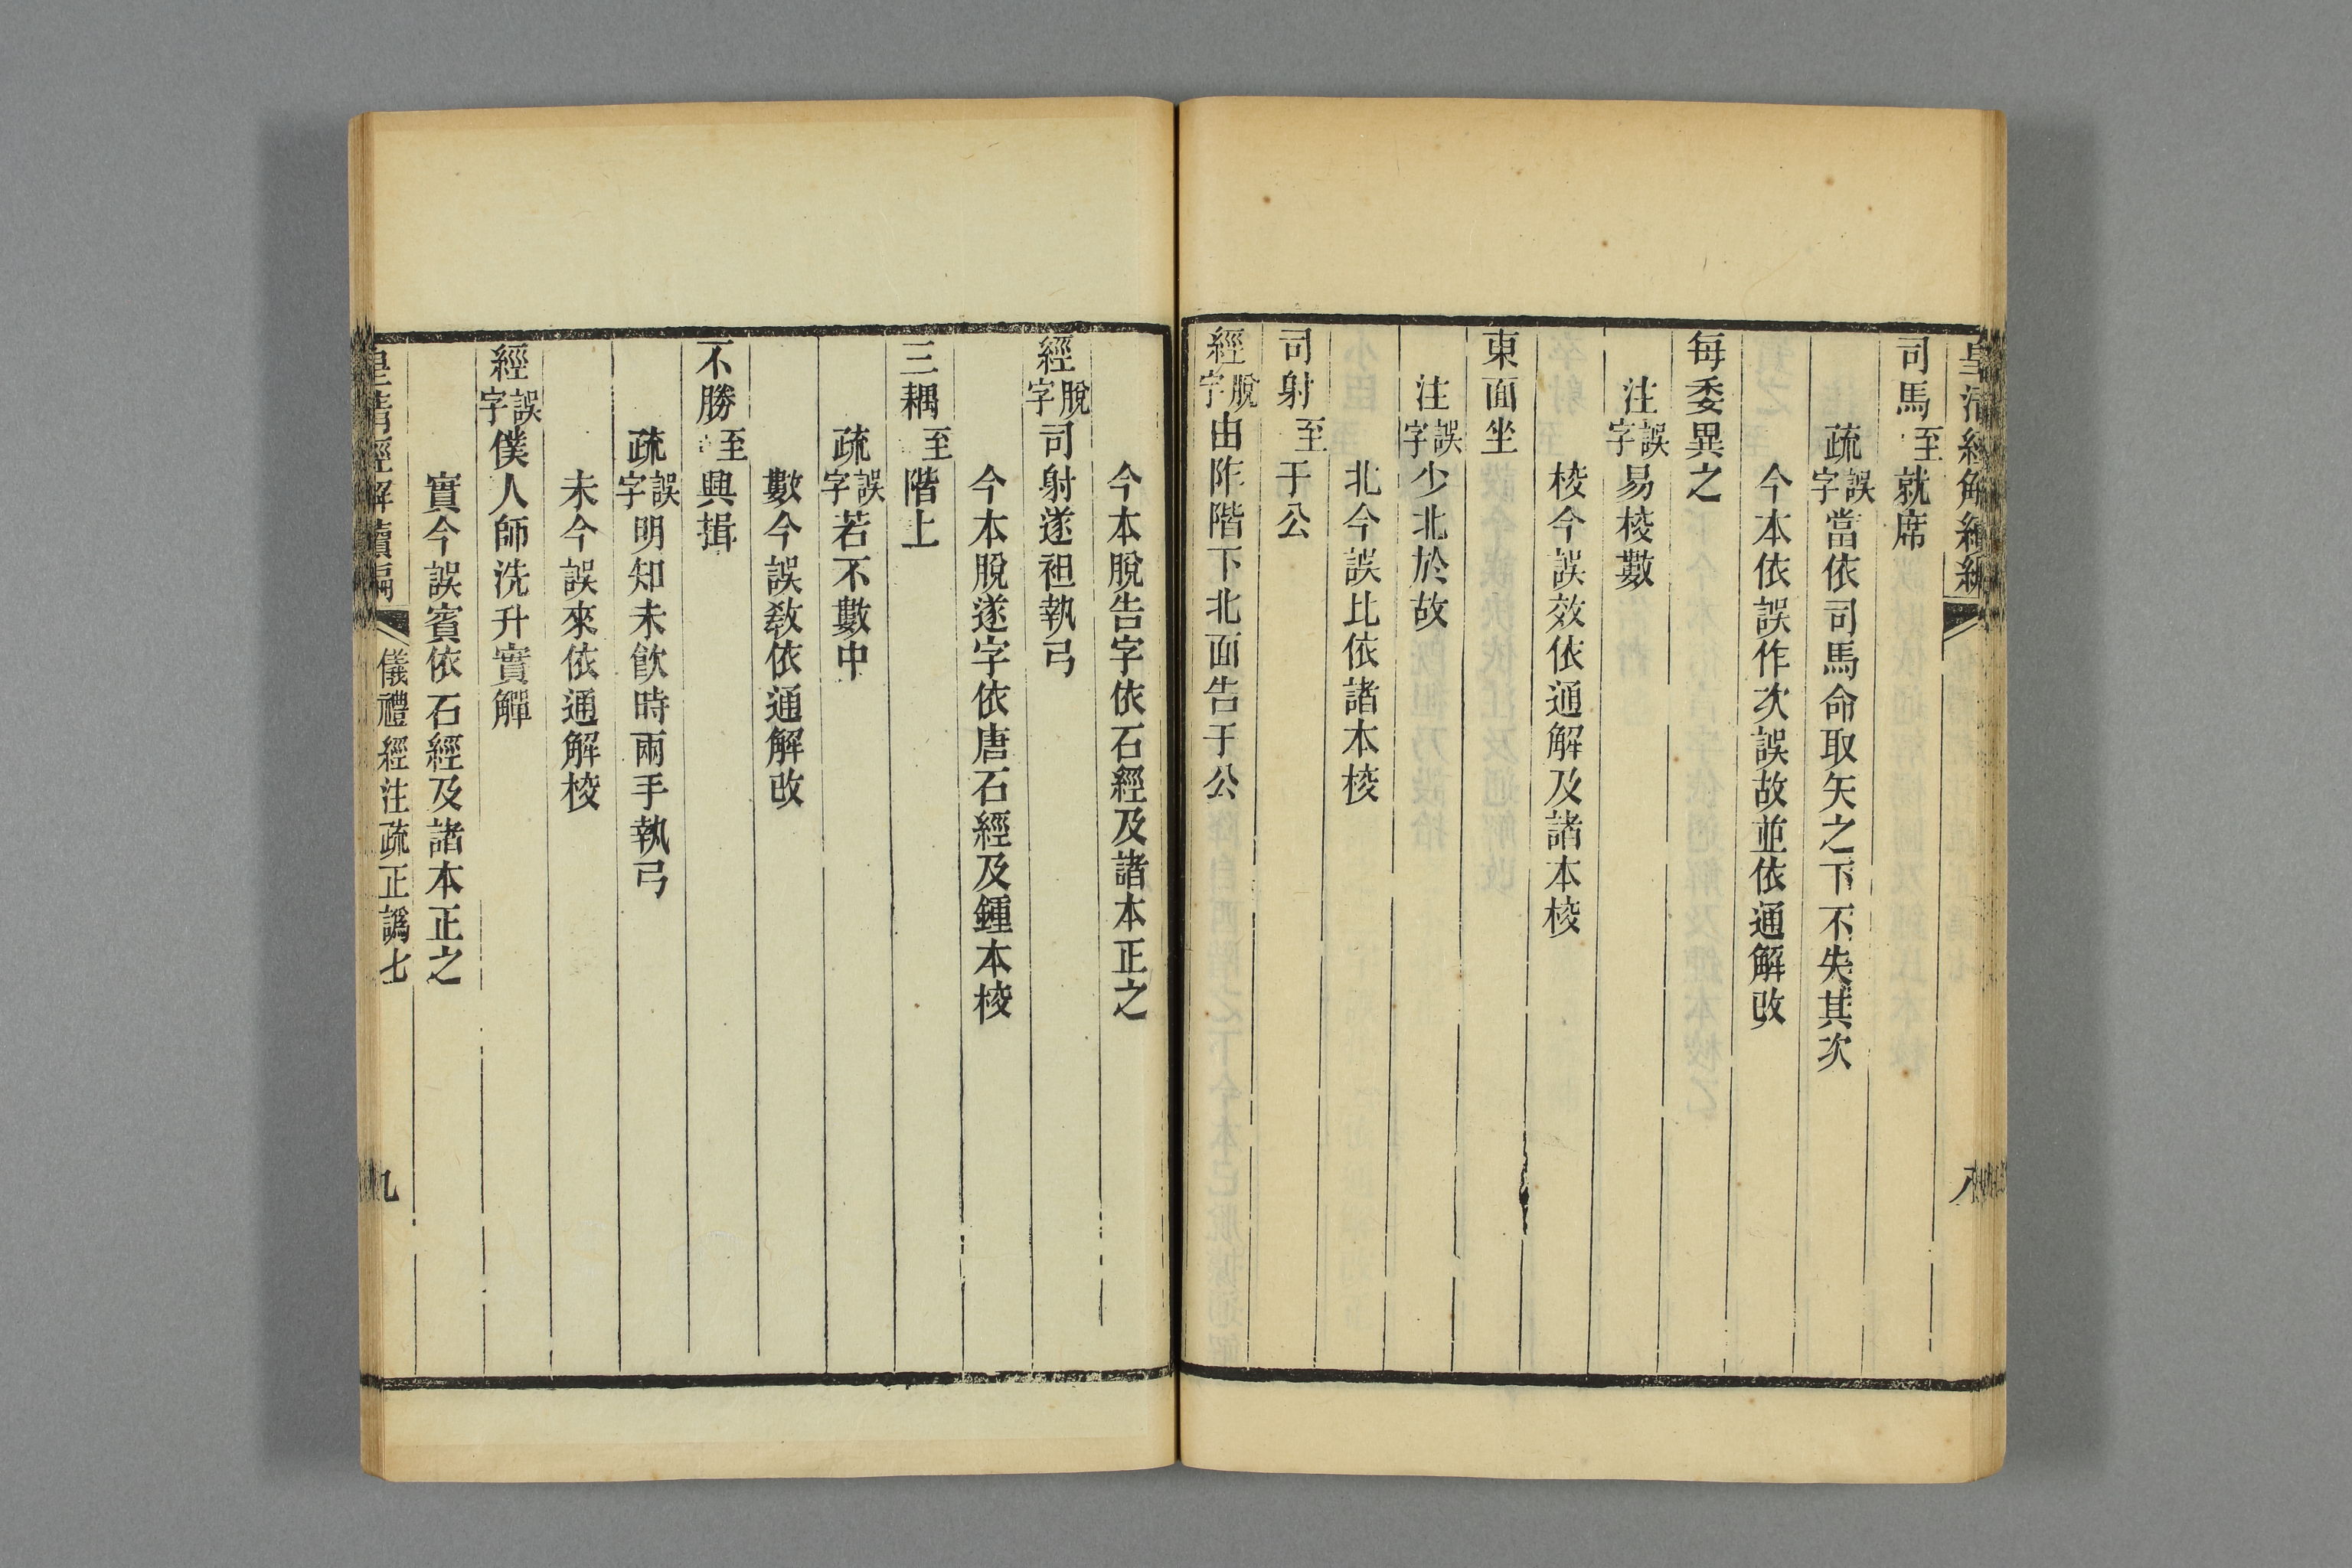 皇清經解續編
八
司馬至就席
疏誤字當依司馬命取矢之下不失其次
今本依誤作次誤故並依通解改
每委異之
注誤字易棱數
棱今誤效依通解及諸本棱
東面坐
注誤字少北於故
北今誤比依諸本棱
司射至于公
經脫字由阼階下北面告于公
今本脫告字依石經及諸本正之
經脫字司射遂袒執弓
今本脫遂字依唐石經及鍾本棱
三耦至階上
疏誤字若不數中
數今誤敎依通解改
不勝至興揖
疏誤字明知未飮時兩手執弓
未今誤來依通解棱
經誤字僕人師洗升實觶
實今誤賓依石經及諸本正之
皇清經解續編
儀禮經注疏正譌七
九